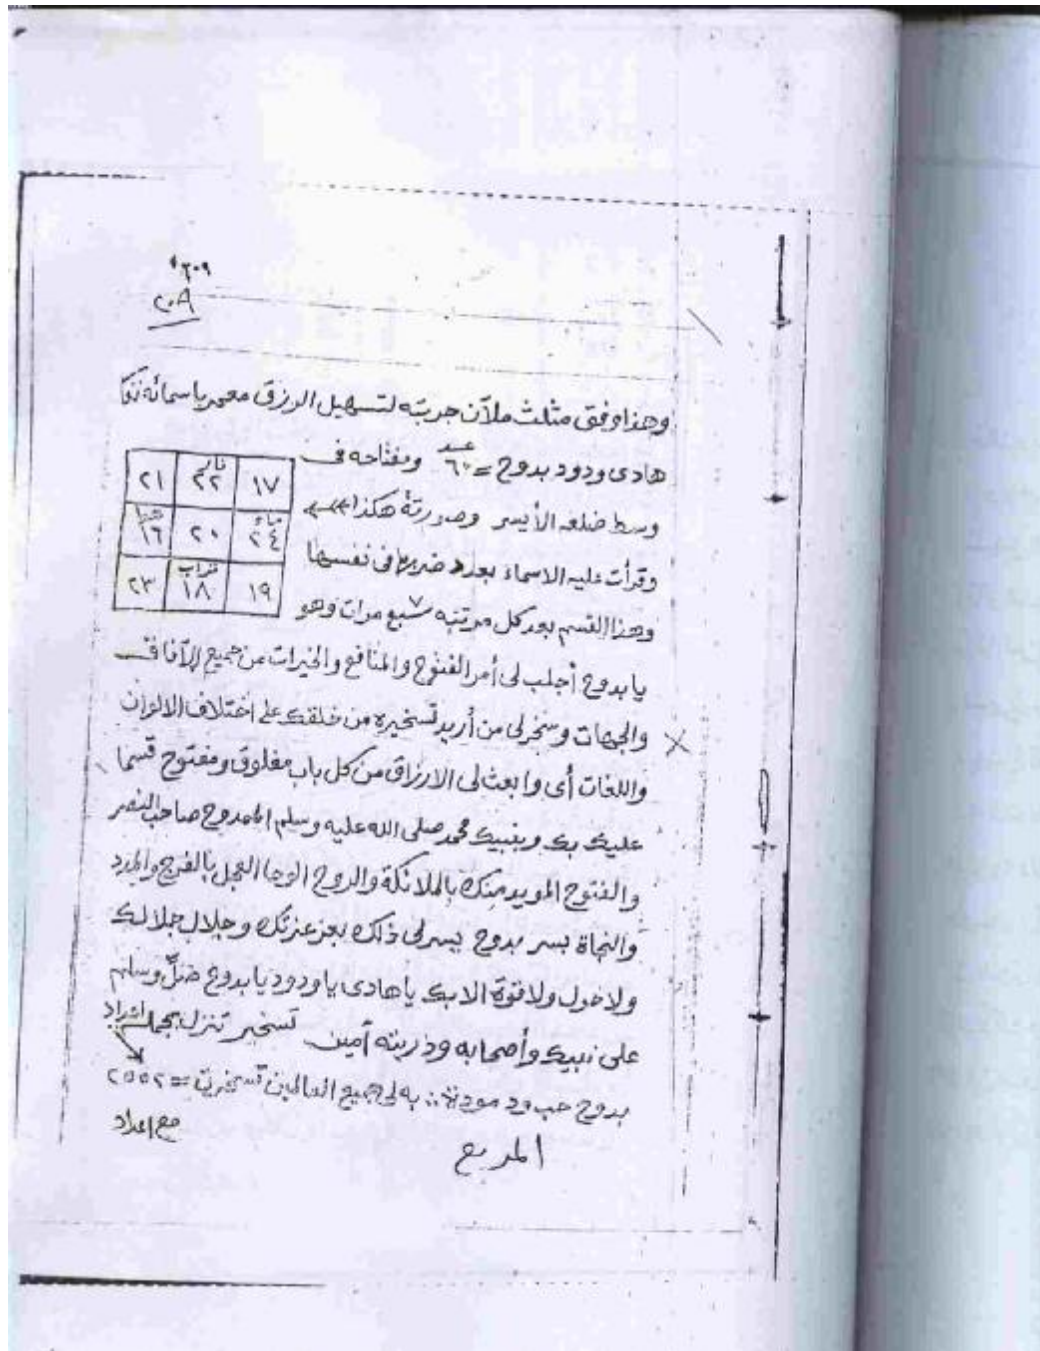 ٢٠٩
٢٠٨
وهذا وفق مثلث ملآن جربته لتسهيل الرزق معمر باسمائه
هادى ودود بدوح = ٦٠ عدد ومفتاحه فى
وسط ضلعه الأيسر وصورته هكذا
٢١ نار ٢٢ ١٧
١٦ ٢٠ ماء ٢٤
٢٣ تراب ١٨ ١٩
وقرأت عليه الاسماء بعدد ضربها فى نفسها
وهذا القسم بعد كل مرتبه ٧ سبع مرات وهو
يا بدوح أجلب لى أمر الفتوح والمنافع والخيرات من جميع الآفاق
والجهات وسخر لى من أريد تسخيره من خلقك على اختلاف الالوان
واللغات أى وابعث لى الارزاق من كل باب مغلوق ومفتوح قسما
عليك بك وبنبيك محمد صلى الله عليه وسلم الممدوح صاحب النصر
والفتوح المويد منك بالملائكة والروح الوحا العجل بالفرج والمدد
والنجاة بسر بدوح يسر لى ذلك بعز عزتك وجلال جلالك
ولا حول ولا قوة الا بك يا هادى يا ودود يا بدوح صل وسلم
على نبيك وأصحابه وذريته آمين تسخير تنزل بجملة اعداد
بدوح حب ود مودة :: به لى جميع العالمين تسخرت = ٢٥٥٢
مع اعداد
المربع